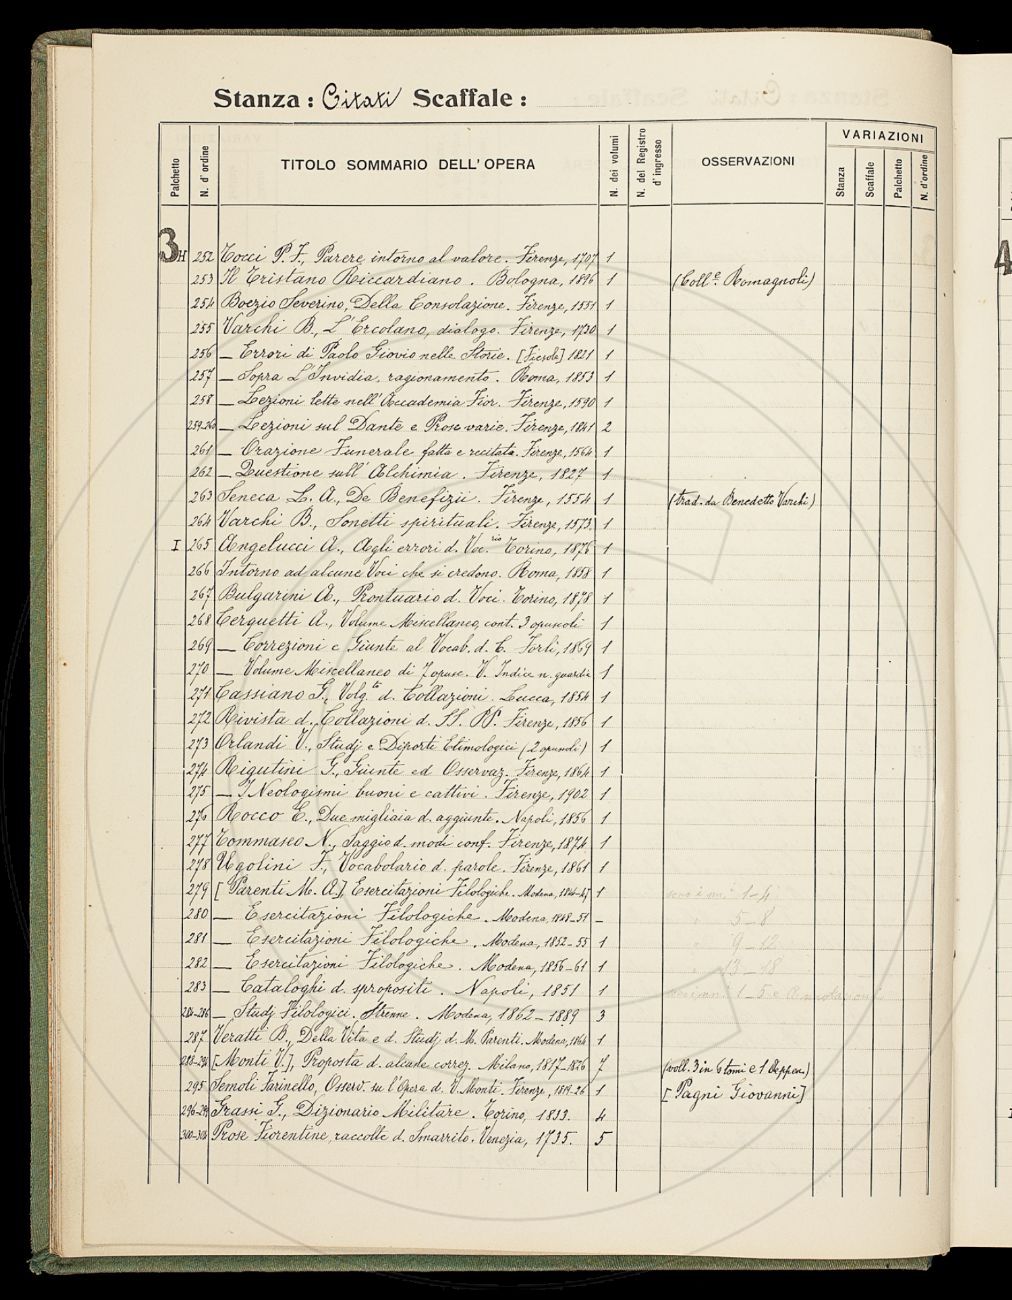 Stanza: Citati Scaffale:
Palchetto N. d'ordine TITOLO SOMMARIO DELL'OPERA N. dei volumi N. del Registro d'ingresso OSSERVAZIONI VARIAZIONI
Stanza Scaffale Palchetto N. d'ordine
3 H 252 Tocci P. F., Parere intorno al valore. Firenze, 1707 1
253 Il Tristano Riccardiano. Bologna, 1896 1 (Coll.e Romagnoli)
254 Boezio Severino, Della Consolazione. Firenze, 1551 1
255 Varchi B., L'Ercolano, dialogo. Firenze, 1730 1
256 — Errori di Paolo Giovio nelle Storie. [Fiesole] 1821 1
257 — Sopra L'Invidia, ragionamento. Roma, 1853 1
258 — Lezioni lette nell'Accademia Fior. Firenze, 1590 1
259-260 — Lezioni sul Dante e Prose varie. Firenze, 1841 2
261 — Orazione Funerale fatta e recitata. Firenze, 1564 1
262 — Questione sull'Alchimia. Firenze, 1827 1
263 Seneca L. A., De Benefizii. Firenze, 1554 1 (trad. da Benedetto Varchi)
264 Varchi B., Sonetti spirituali. Firenze, 1573 1
I 265 Angelucci A., Agli errori d. Voc.rio Torino, 1876 1
266 Intorno ad alcune Voci che si credono. Roma, 1858 1
267 Bulgarini A., Prontuario d. Voci. Torino, 1878 1
268 Cerquetti A., Volume Miscellaneo, cont. 3 opuscoli 1
269 — Correzioni e Giunte al Vocab. d. C. Forlì, 1869 1
270 — Volume Miscellaneo di 7 opusc. V. Indice n. guardie 1
271 Cassiano G., Volg.to d. Collazioni. Lucca, 1854 1
272 Rivista d. Collazioni d. SS. PP. Firenze, 1856 1
273 Orlandi V., Studj e Diporti Etimologici (2 opuscoli) 1
274 Rigutini G., Giunte ed Osservaz. Firenze, 1864 1
275 — I Neologismi buoni e cattivi. Firenze, 1902 1
276 Rocco E., Due migliaia d. aggiunte. Napoli, 1856 1
277 Tommaseo N., Saggio d. modi conf. Firenze, 1874 1
278 Ugolini F., Vocabolario d. parole. Firenze, 1861 1
279 [Parenti M. A.] Esercitazioni Filologiche. Modena, 1844-47 1 1-4
280 — Esercitazioni Filologiche. Modena, 1848-51 – 5-8
281 — Esercitazioni Filologiche. Modena, 1852-55 1 9-12
282 — Esercitazioni Filologiche. Modena, 1856-61 1 13-18
283 — Cataloghi d. spropositi. Napoli, 1851 1 1-5 e Annotazioni
284-286 — Studj Filologici. Strenne. Modena, 1862-1889 3
287 Veratti B., Della Vita e d. Studj d. M. Parenti. Modena, 1864 1
288-294 [Monti V.], Proposta d. alcune correz. Milano, 1817-1826 7 (voll. 3 in 6 tomi e 1 Appen.)
295 Semoli Farinello, Osserv. su l'Opera d. V. Monti. Firenze, 1819-26 1 [Pagni Giovanni]
296-299 Grassi G., Dizionario Militare. Torino, 1833. 4
300-304 Prose Fiorentine, raccolte d. Smarrito. Venezia, 1735. 5